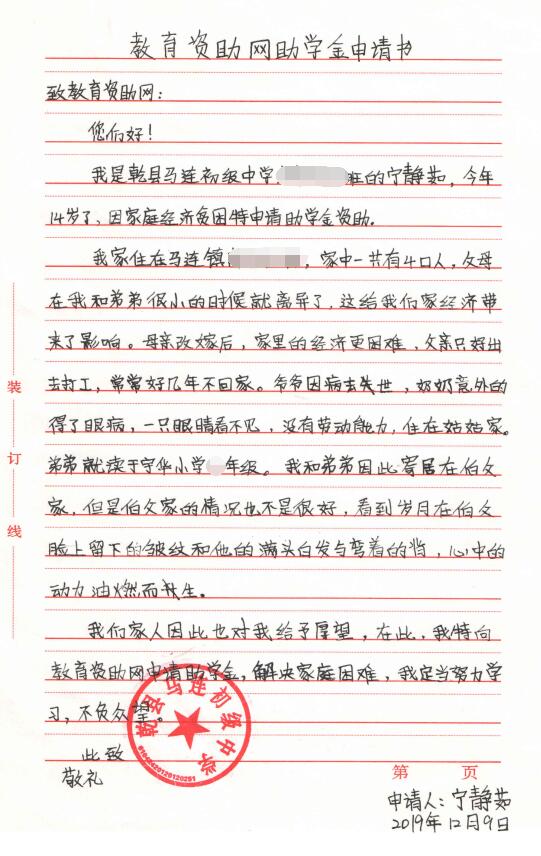 教育资助网助学金申请书
致教育资助网：
您们好！
我是乾县马连初级中学 班的宁静茹，今年
14岁了、因家庭经济贫困特申请助学金资助.
我家住在马连镇 ，家中一共有4口人，父母
在我和弟弟很小的时候就离异了，这给我们家经济带
来了影响。母亲改嫁后，家里的经济更困难，父亲只好出
去打工，常常好几年不回家。爷爷因病去失世，奶奶意外的
得了眼病，一只眼睛看不见，没有劳动能力，住在姑姑家。
弟弟就读于宇华小学 年级。我和弟弟因此寄居在伯父
家，但是伯父家的情况也不是很好，看到岁月在伯父
脸上留下的皱纹和他的满头白发与弯着的 ，心中的
动力油燃而升生。
我们家人因此也对我给予厚望，在此，我特向
教育资助网申请助学金，解决家庭困难，我定当努力学
习，不负众望。
此致
敬礼
乾县马连初级中学
第 页
申请人：宁静茹
2019年12月9日
装
订
线